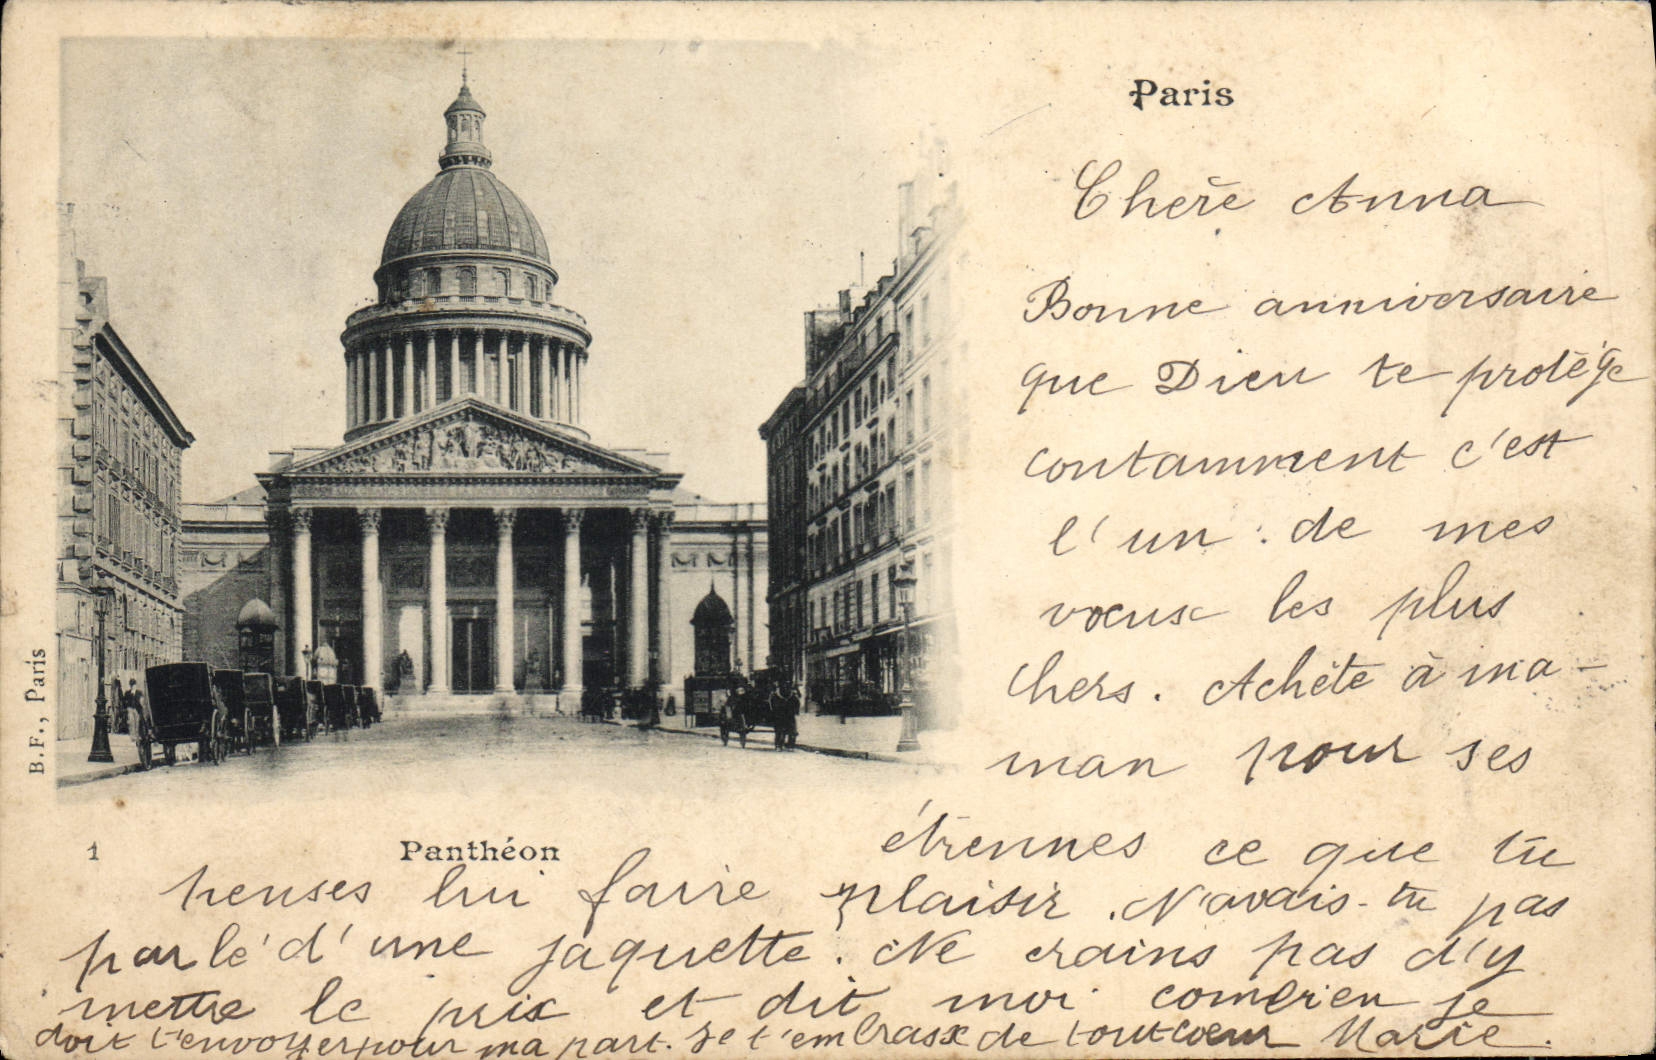 Paris
Chère Anna
Bonne anniversaire
que Dieu te protège
contamment c'est
l'un de mes
voeux les plus
chers. Achète à ma-
man pour ses
étrennes ce que tu
penses lui faire plaisir. N'avais-tu pas
parlé d'une jaquette. Ne crains pas d'y
mettre le prix et dit moi combien je
doit t'envoyer pour ma part. Je t'embrasse de tout coeur Marie.
B.F., Paris
1 Panthéon